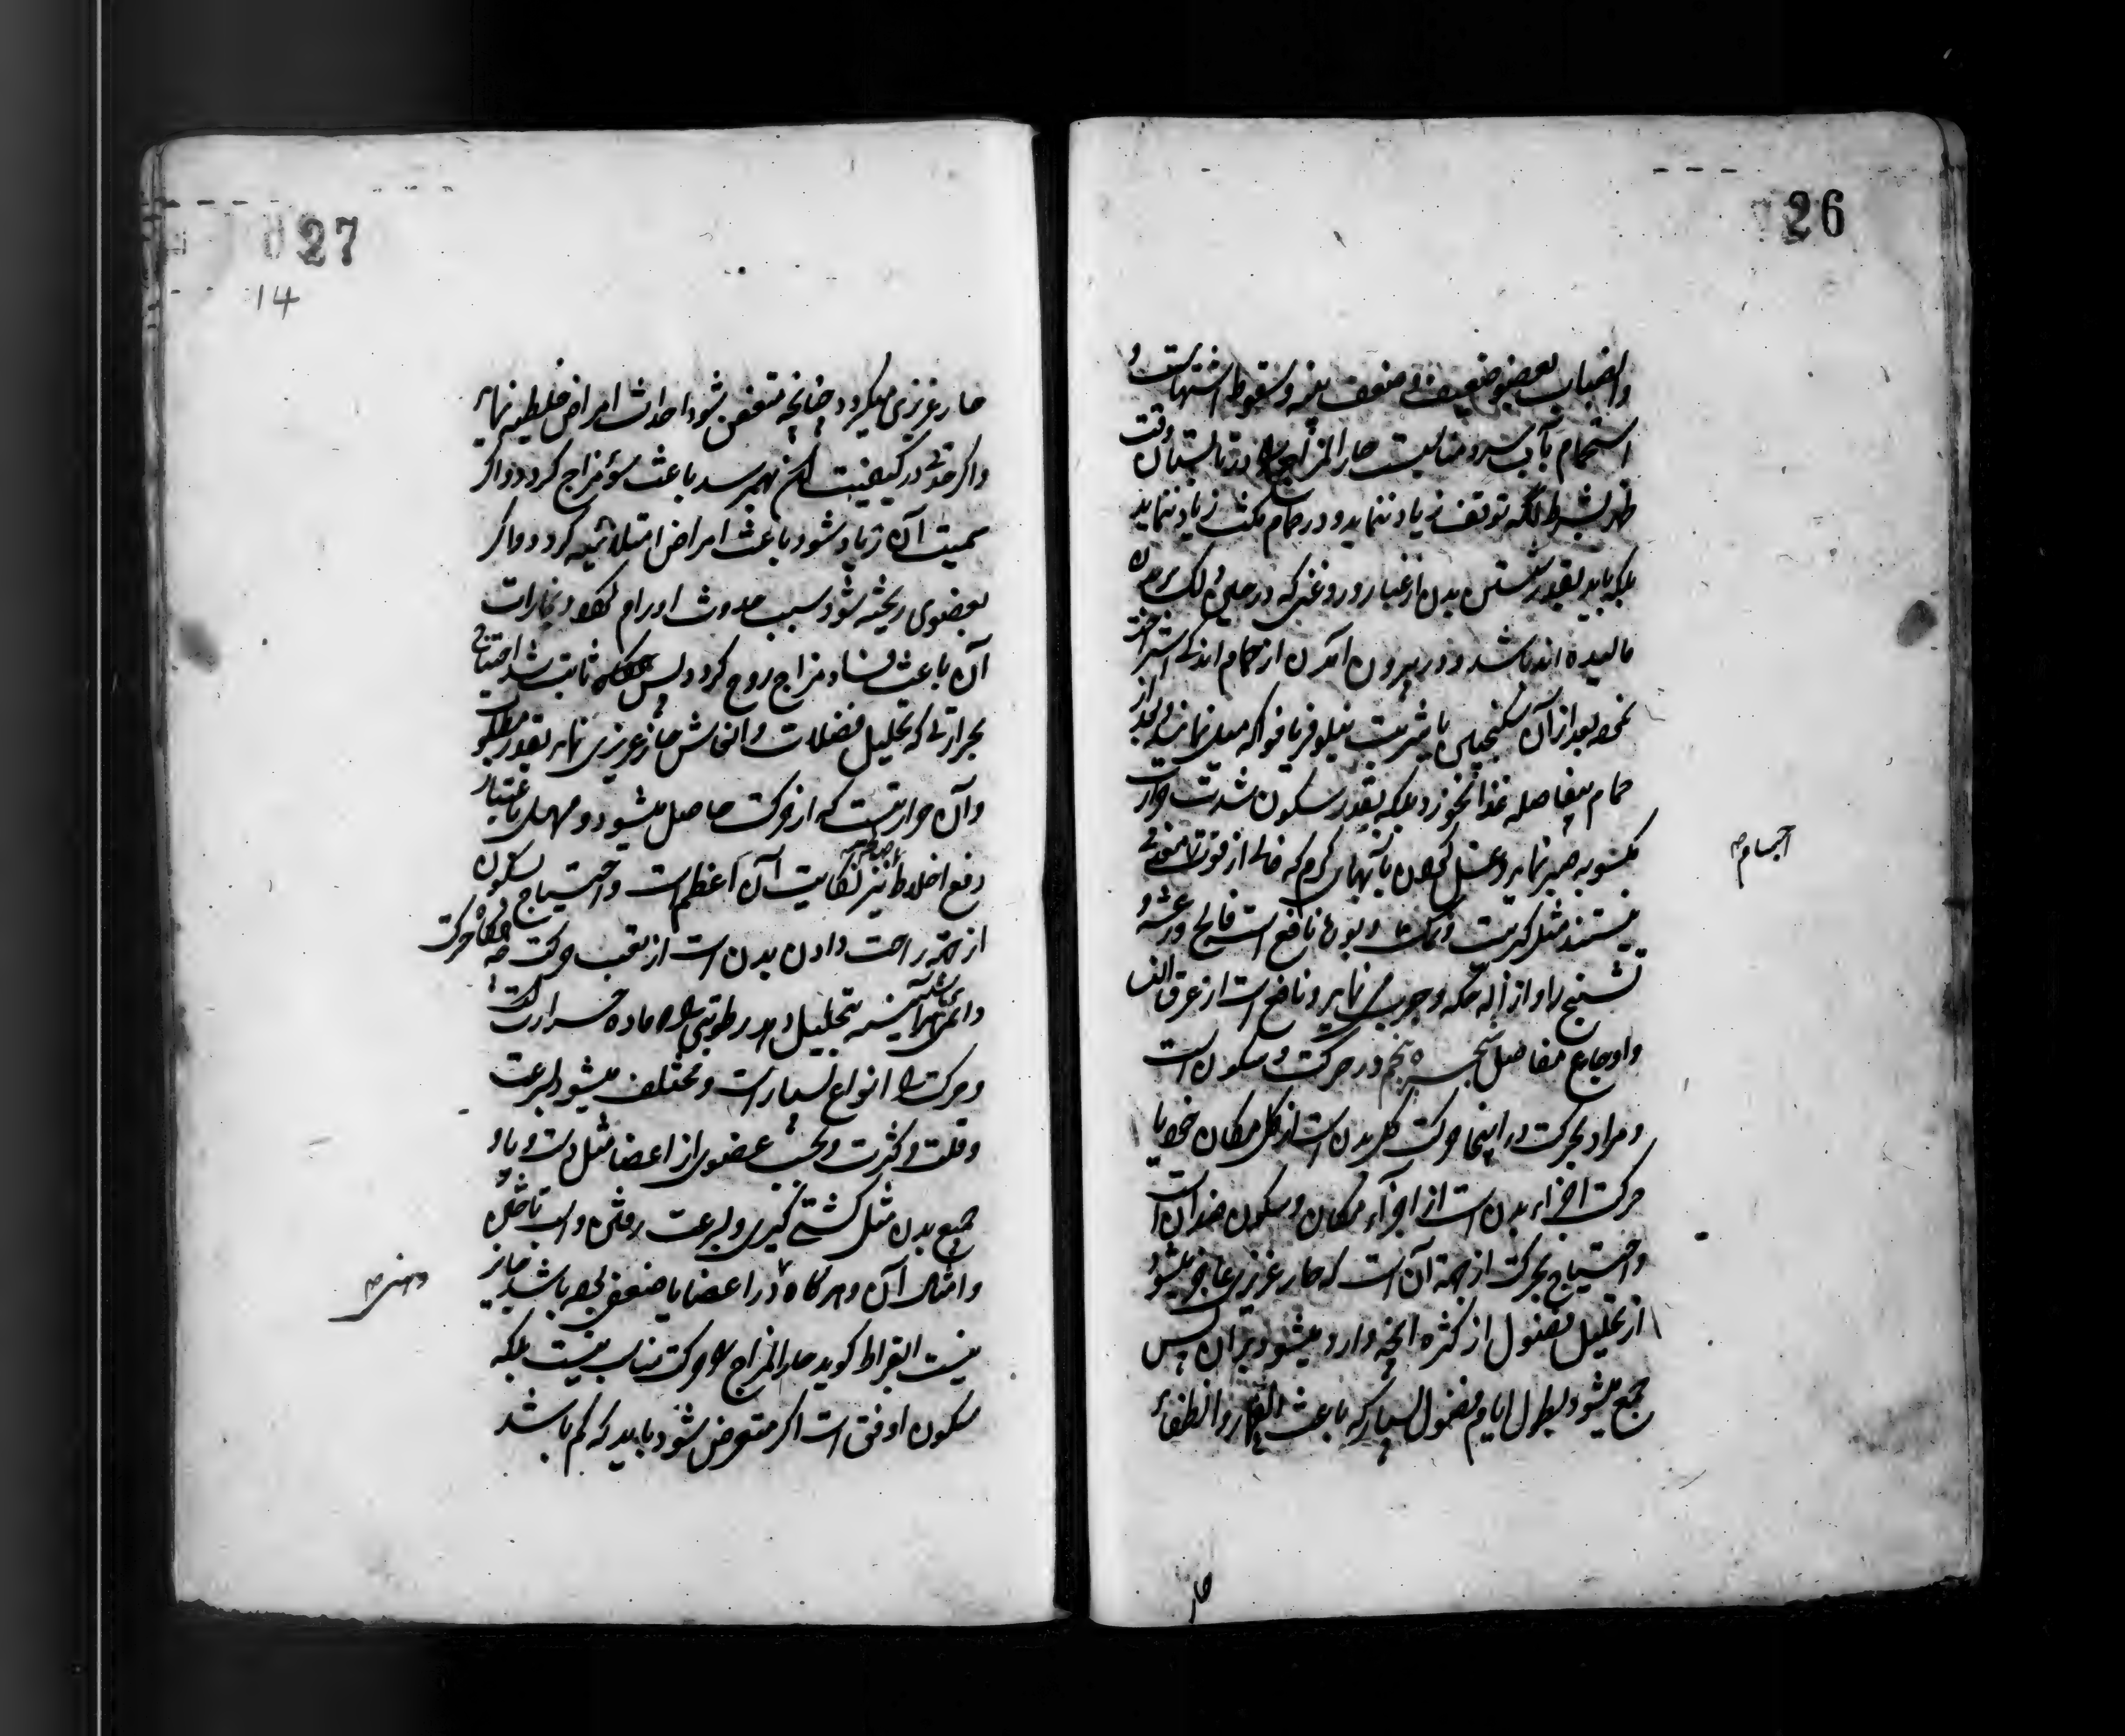 26
وانصباب بعضو ضعیف و ضعف بنیه و سقوط اشتهاست و
استحمام بآب سرد مناسبست حار المزاج را در تابستان وقت
ظهر بشرط آنکه توقف زیاد ننماید و در حمام مکث زیاد ننماید
بلکه باید بقدر شستن بدن از غبار و روغنی که در
مالیده اند باشد و در بیرون آمدن از حمام اندکی استراحت
نموده بعد از آن سکنجبین یا شربت نیلوفر یا فواکه میل نماید و بعد از
حمام بیفاصله غذا نخورد بلکه بقدر سکون شدت حرارت
مکسوبه صبر نماید و غسل کردن بآبهای گرم که خالی از قوت معدنی
نیستند مثل کبریت و نمک و بوره نافع است فالج و رعشه و
تشنج را و ازاله حکه و جرب می نماید و نافع است از عرق النسا
و اوجاع مفاصل پنجم در حرکت و سکون است
و مراد بحرکت در اینجا حرکت کل بدن است از کل مکان خود یا
حرکت اجزاء بدن است از اجزاء مکان و سکون ضد آن است
و احتیاج بحرکت از جهة آن است که حار غریزی عاجز میشود
از تحلیل فضول از کثرة آنچه وارد میشود بر آن پس
جمع میشود بطول ایام فضول بسیار که باعث و انطفاء
حار
27
14
حار غریزی میگردد چنانچه متعفن شود احداث امراض غلیظه نماید
و اگر در کیفیت آن بهم رسد باعث سوء مزاج گردد و اگر
کمیت آن زیاد شود باعث امراض امتلائیه گردد و اگر
بعضوی ریخته شود سبب حدوث اورام گردد و بخارات
آن باعث فساد مزاج روح گردد پس ثابت شد احتیاج
بحرارتی که تحلیل فضلات و انتعاش حار غریزی نماید بقدر مطلوب
و آن حرارتیست که از حرکت حاصل میشود و مسهل باعتبار
دفع اخلاط نیز نکایت آن اعظم است و احتیاج بسکون
از جهة راحت دادن بدن است از تعب حرکت چه هرگاه حرکت
دائمی باشد هرآینه بتحلیل دهد رطوبتی را که ماده حرارت است
و حرکت را انواع بسیار است و مختلف میشود بسرعت
و قلت و کثرت و بحسب عضوی از اعضا مثل دست و پا و
جمیع بدن مثل کشتی گیری و بسرعت رفتن و اسب تاختن
و امثال آن و هر گاه در اعضا یا ضعفی بوده باشد جائز
نیست ابقراط گوید حار المزاج را حرکت مناسب نیست بلکه
سکون اوفق است اگر متعرض شود باید که کم باشد